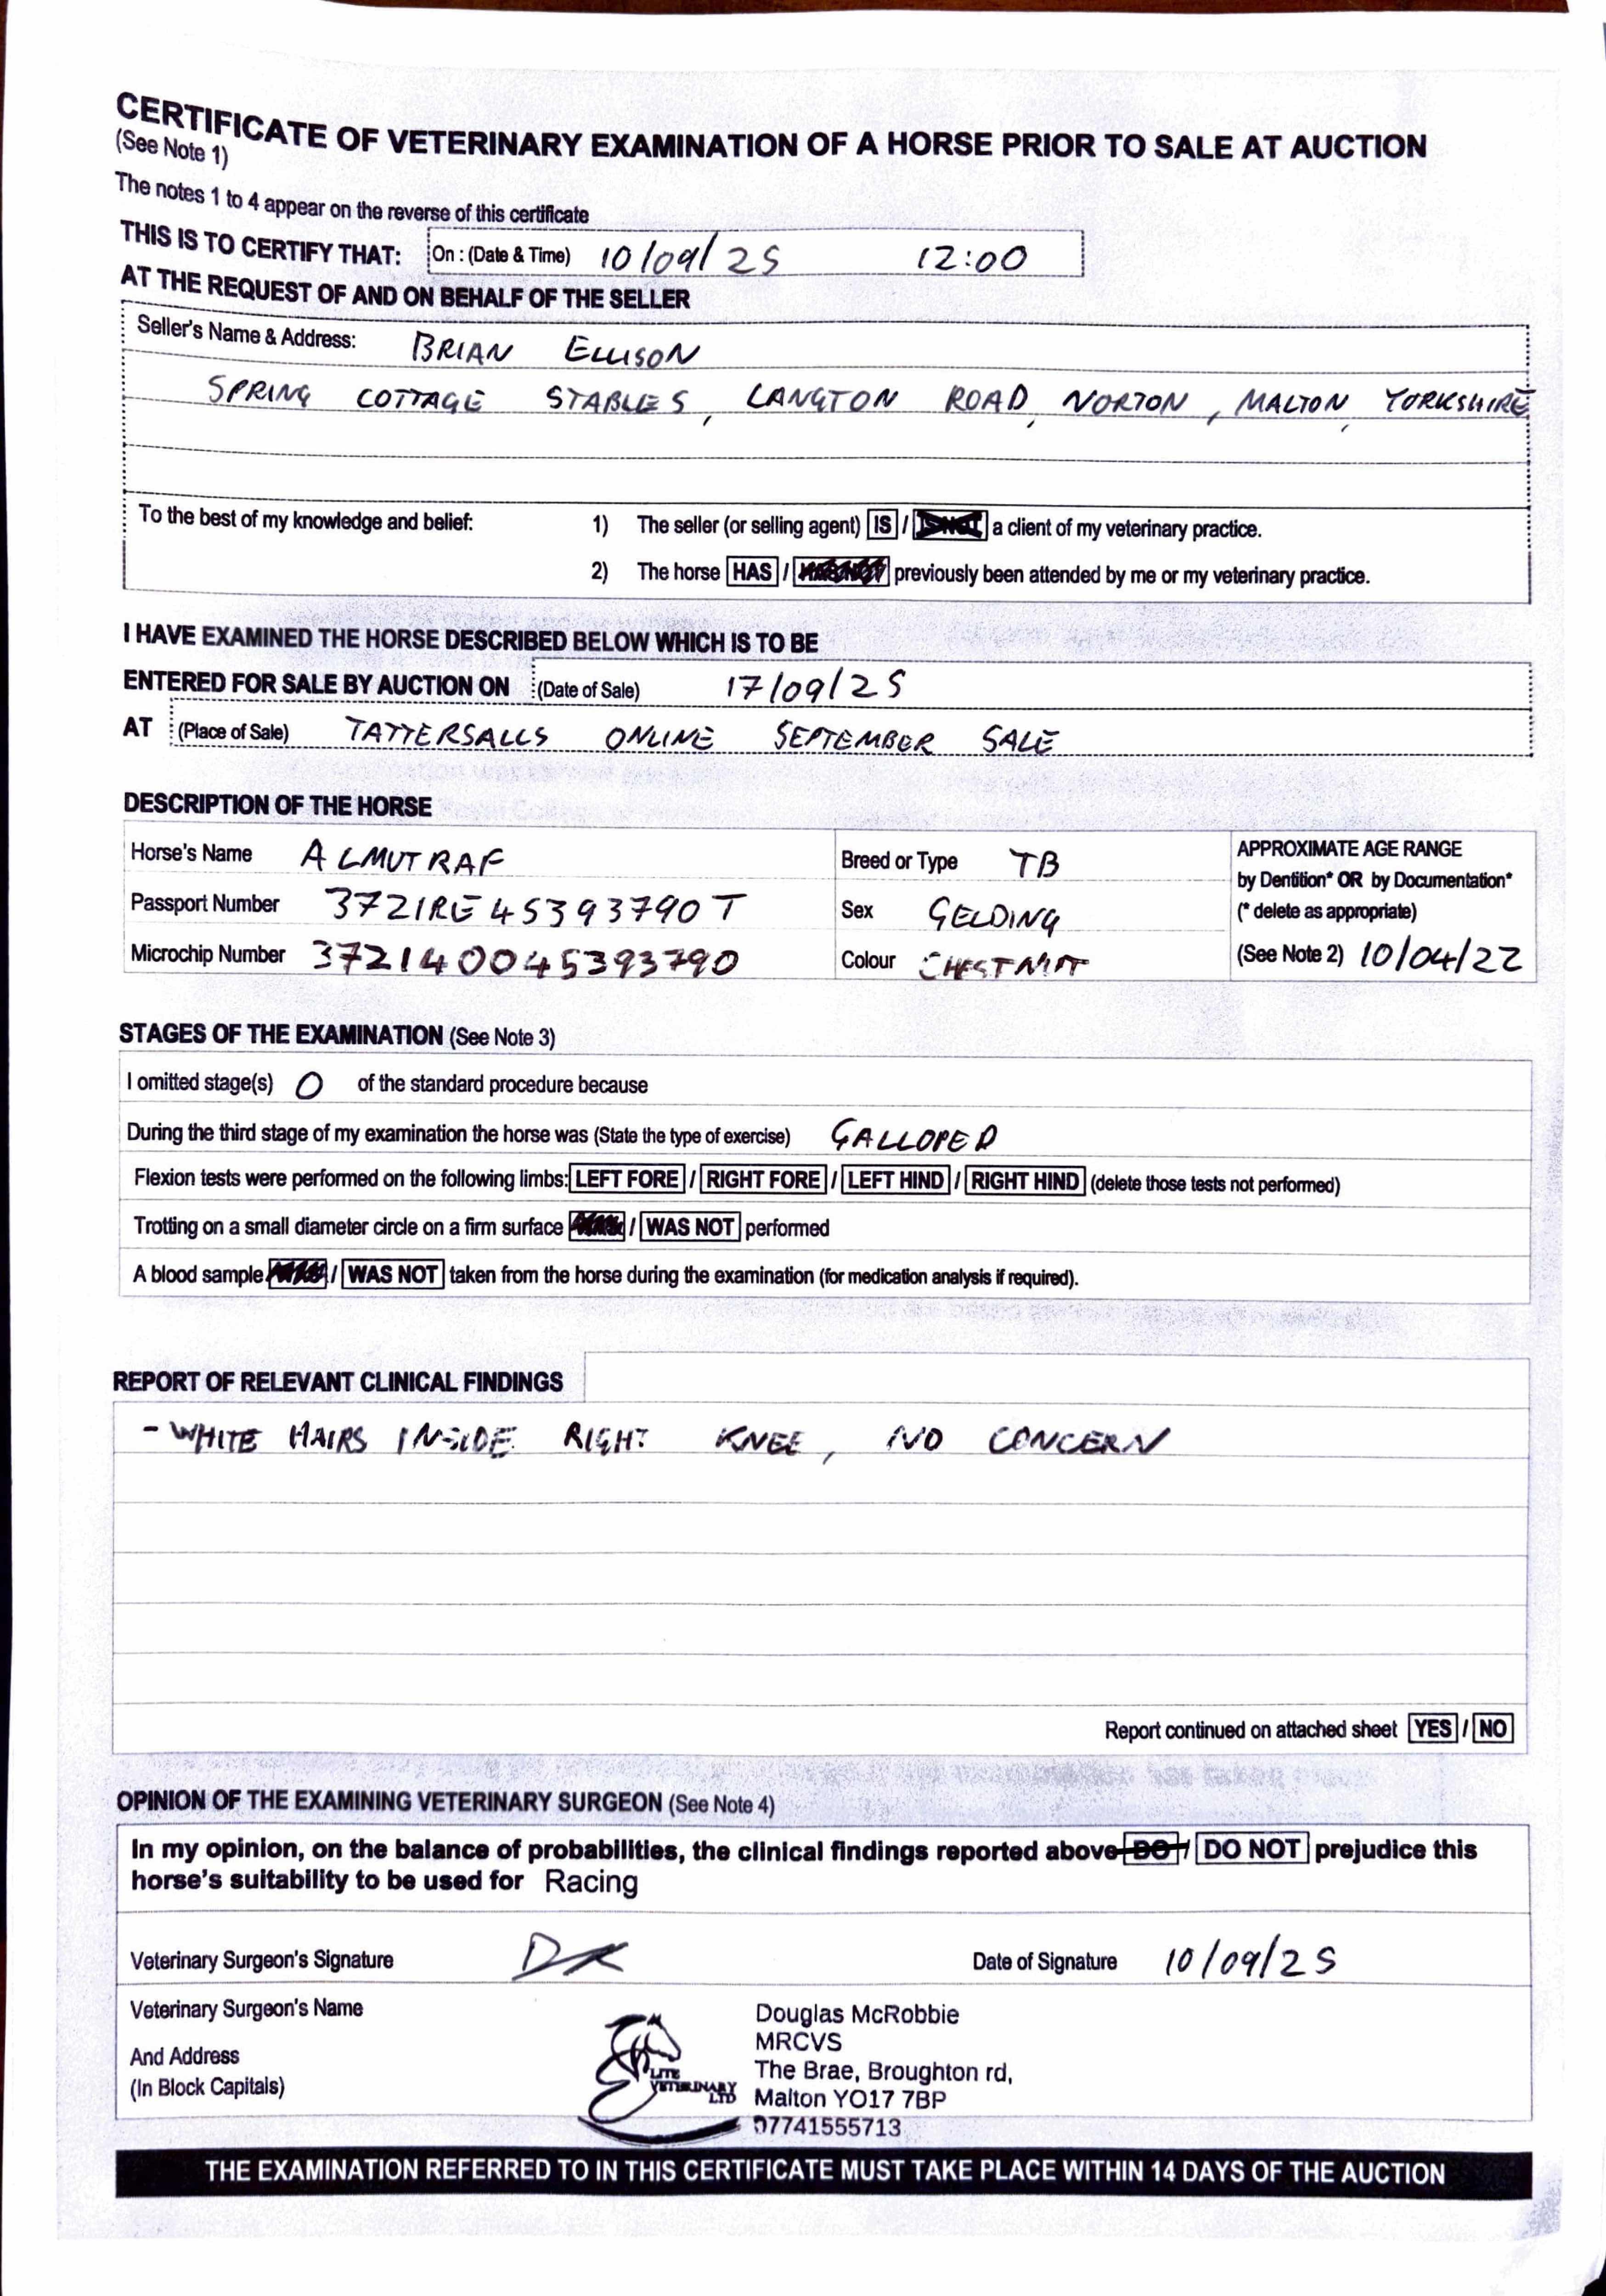 CERTIFICATE OF VETERINARY EXAMINATION OF A HORSE PRIOR TO SALE AT AUCTION
(See Note 1)
The notes 1 to 4 appear on the reverse of this certificate
THIS IS TO CERTIFY THAT: On : (Date & Time) 10/09/25 12:00
AT THE REQUEST OF AND ON BEHALF OF THE SELLER
Seller's Name & Address: BRIAN ELLISON
SPRING COTTAGE STABLES, LANGTON ROAD, NORTON, MALTON, YORKSHIRE
To the best of my knowledge and belief: 1) The seller (or selling agent) IS / IS NOT a client of my veterinary practice.
2) The horse HAS / HAS NOT previously been attended by me or my veterinary practice.
I HAVE EXAMINED THE HORSE DESCRIBED BELOW WHICH IS TO BE
ENTERED FOR SALE BY AUCTION ON (Date of Sale) 17/09/25
AT (Place of Sale) TATTERSALLS ONLINE SEPTEMBER SALE
DESCRIPTION OF THE HORSE
Horse's Name ALMUTRAF Breed or Type TB APPROXIMATE AGE RANGE
by Dentition* OR by Documentation*
Passport Number 372IRE45393790T Sex GELDING (* delete as appropriate)
Microchip Number 372140045393790 Colour CHESTNUT (See Note 2) 10/04/22
STAGES OF THE EXAMINATION (See Note 3)
I omitted stage(s) 0 of the standard procedure because
During the third stage of my examination the horse was (State the type of exercise) GALLOPED
Flexion tests were performed on the following limbs: LEFT FORE / RIGHT FORE / LEFT HIND / RIGHT HIND (delete those tests not performed)
Trotting on a small diameter circle on a firm surface / WAS NOT performed
A blood sample / WAS NOT taken from the horse during the examination (for medication analysis if required).
REPORT OF RELEVANT CLINICAL FINDINGS
- WHITE HAIRS INSIDE RIGHT KNEE, NO CONCERN
Report continued on attached sheet YES / NO
OPINION OF THE EXAMINING VETERINARY SURGEON (See Note 4)
In my opinion, on the balance of probabilities, the clinical findings reported above DO / DO NOT prejudice this
horse's suitability to be used for Racing
Veterinary Surgeon's Signature Date of Signature 10/09/25
Veterinary Surgeon's Name
And Address
(In Block Capitals)
LITE
VETERINARY
LTD
Douglas McRobbie
MRCVS
The Brae, Broughton rd,
Malton YO17 7BP
07741555713
THE EXAMINATION REFERRED TO IN THIS CERTIFICATE MUST TAKE PLACE WITHIN 14 DAYS OF THE AUCTION